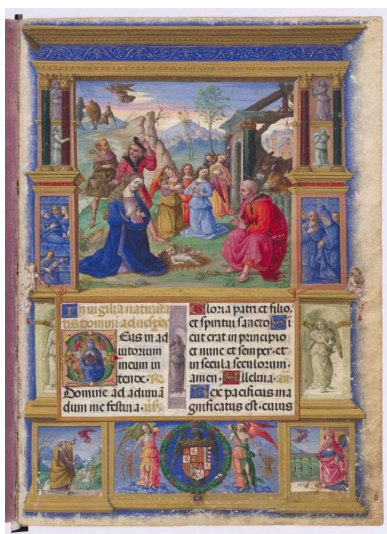 In vigilia nativita
tis domini ad vesp̄as
Eus in ad
iutorium
meum in
tende. R.
Domine ad adiuvā
dum me festina. ūs.
Gloria patri et filio.
et spiritui sancto. Si
cut erat in principio
et nunc et semper. et
in secula seculorum.
amen. Alleluia. añ.
Rex pacificus ma
gnificatus est. cuius